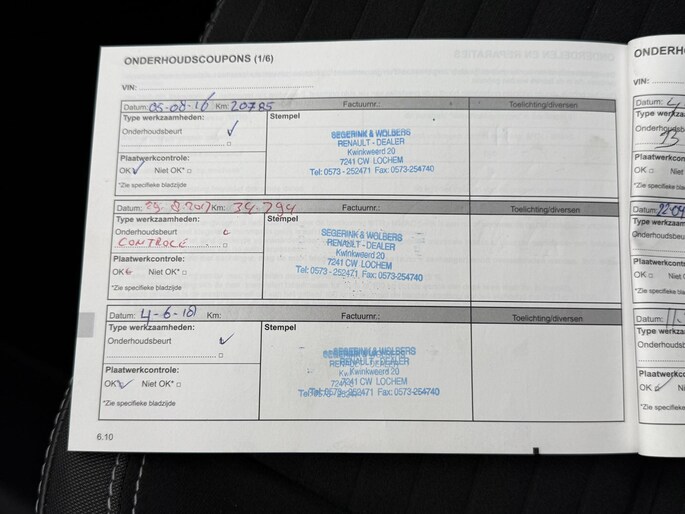 ONDERHOUDSCOUPONS (1/6)
VIN:
Datum: 05-08-16 Km: 20785 Factuurnr.: Toelichting/diversen
Type werkzaamheden: Stempel
Onderhoudsbeurt
SEGERINK & WOLBERS
RENAULT - DEALER
Kwinkweerd 20
7241 CW LOCHEM
Tel: 0573 - 252471 Fax: 0573-254740
Plaatwerkcontrole:
OK Niet OK*
*Zie specifieke bladzijde
Datum: Km: 34.794 Factuurnr.: Toelichting/diversen
Type werkzaamheden: Stempel
Onderhoudsbeurt
CONTROLE
SEGERINK & WOLBERS
RENAULT - DEALER
Kwinkweerd 20
7241 CW LOCHEM
Tel: 0573 - 252471 Fax: 0573-254740
Plaatwerkcontrole:
OK Niet OK*
*Zie specifieke bladzijde
Datum: 4-6-18 Km: Factuurnr.: Toelichting/diversen
Type werkzaamheden: Stempel
Onderhoudsbeurt
SEGERINK & WOLBERS
RENAULT - DEALER
Kwinkweerd 20
7241 CW LOCHEM
Tel: 0573 - 252471 Fax: 0573-254740
Plaatwerkcontrole:
OK Niet OK*
*Zie specifieke bladzijde
6.10
ONDERH
VIN:
Datum:
Type werkza
Onderhoudsb
Plaatwerkcon
OK Niet
*Zie specifieke
Datum: 22-04
Type werkzaam
Onderhoudsbeu
Plaatwerkcontr
OK Niet
*Zie specifieke bla
Datum:
Type werkza
Onderhoudsb
Plaatwerkco
OK Ni
*Zie specifieke